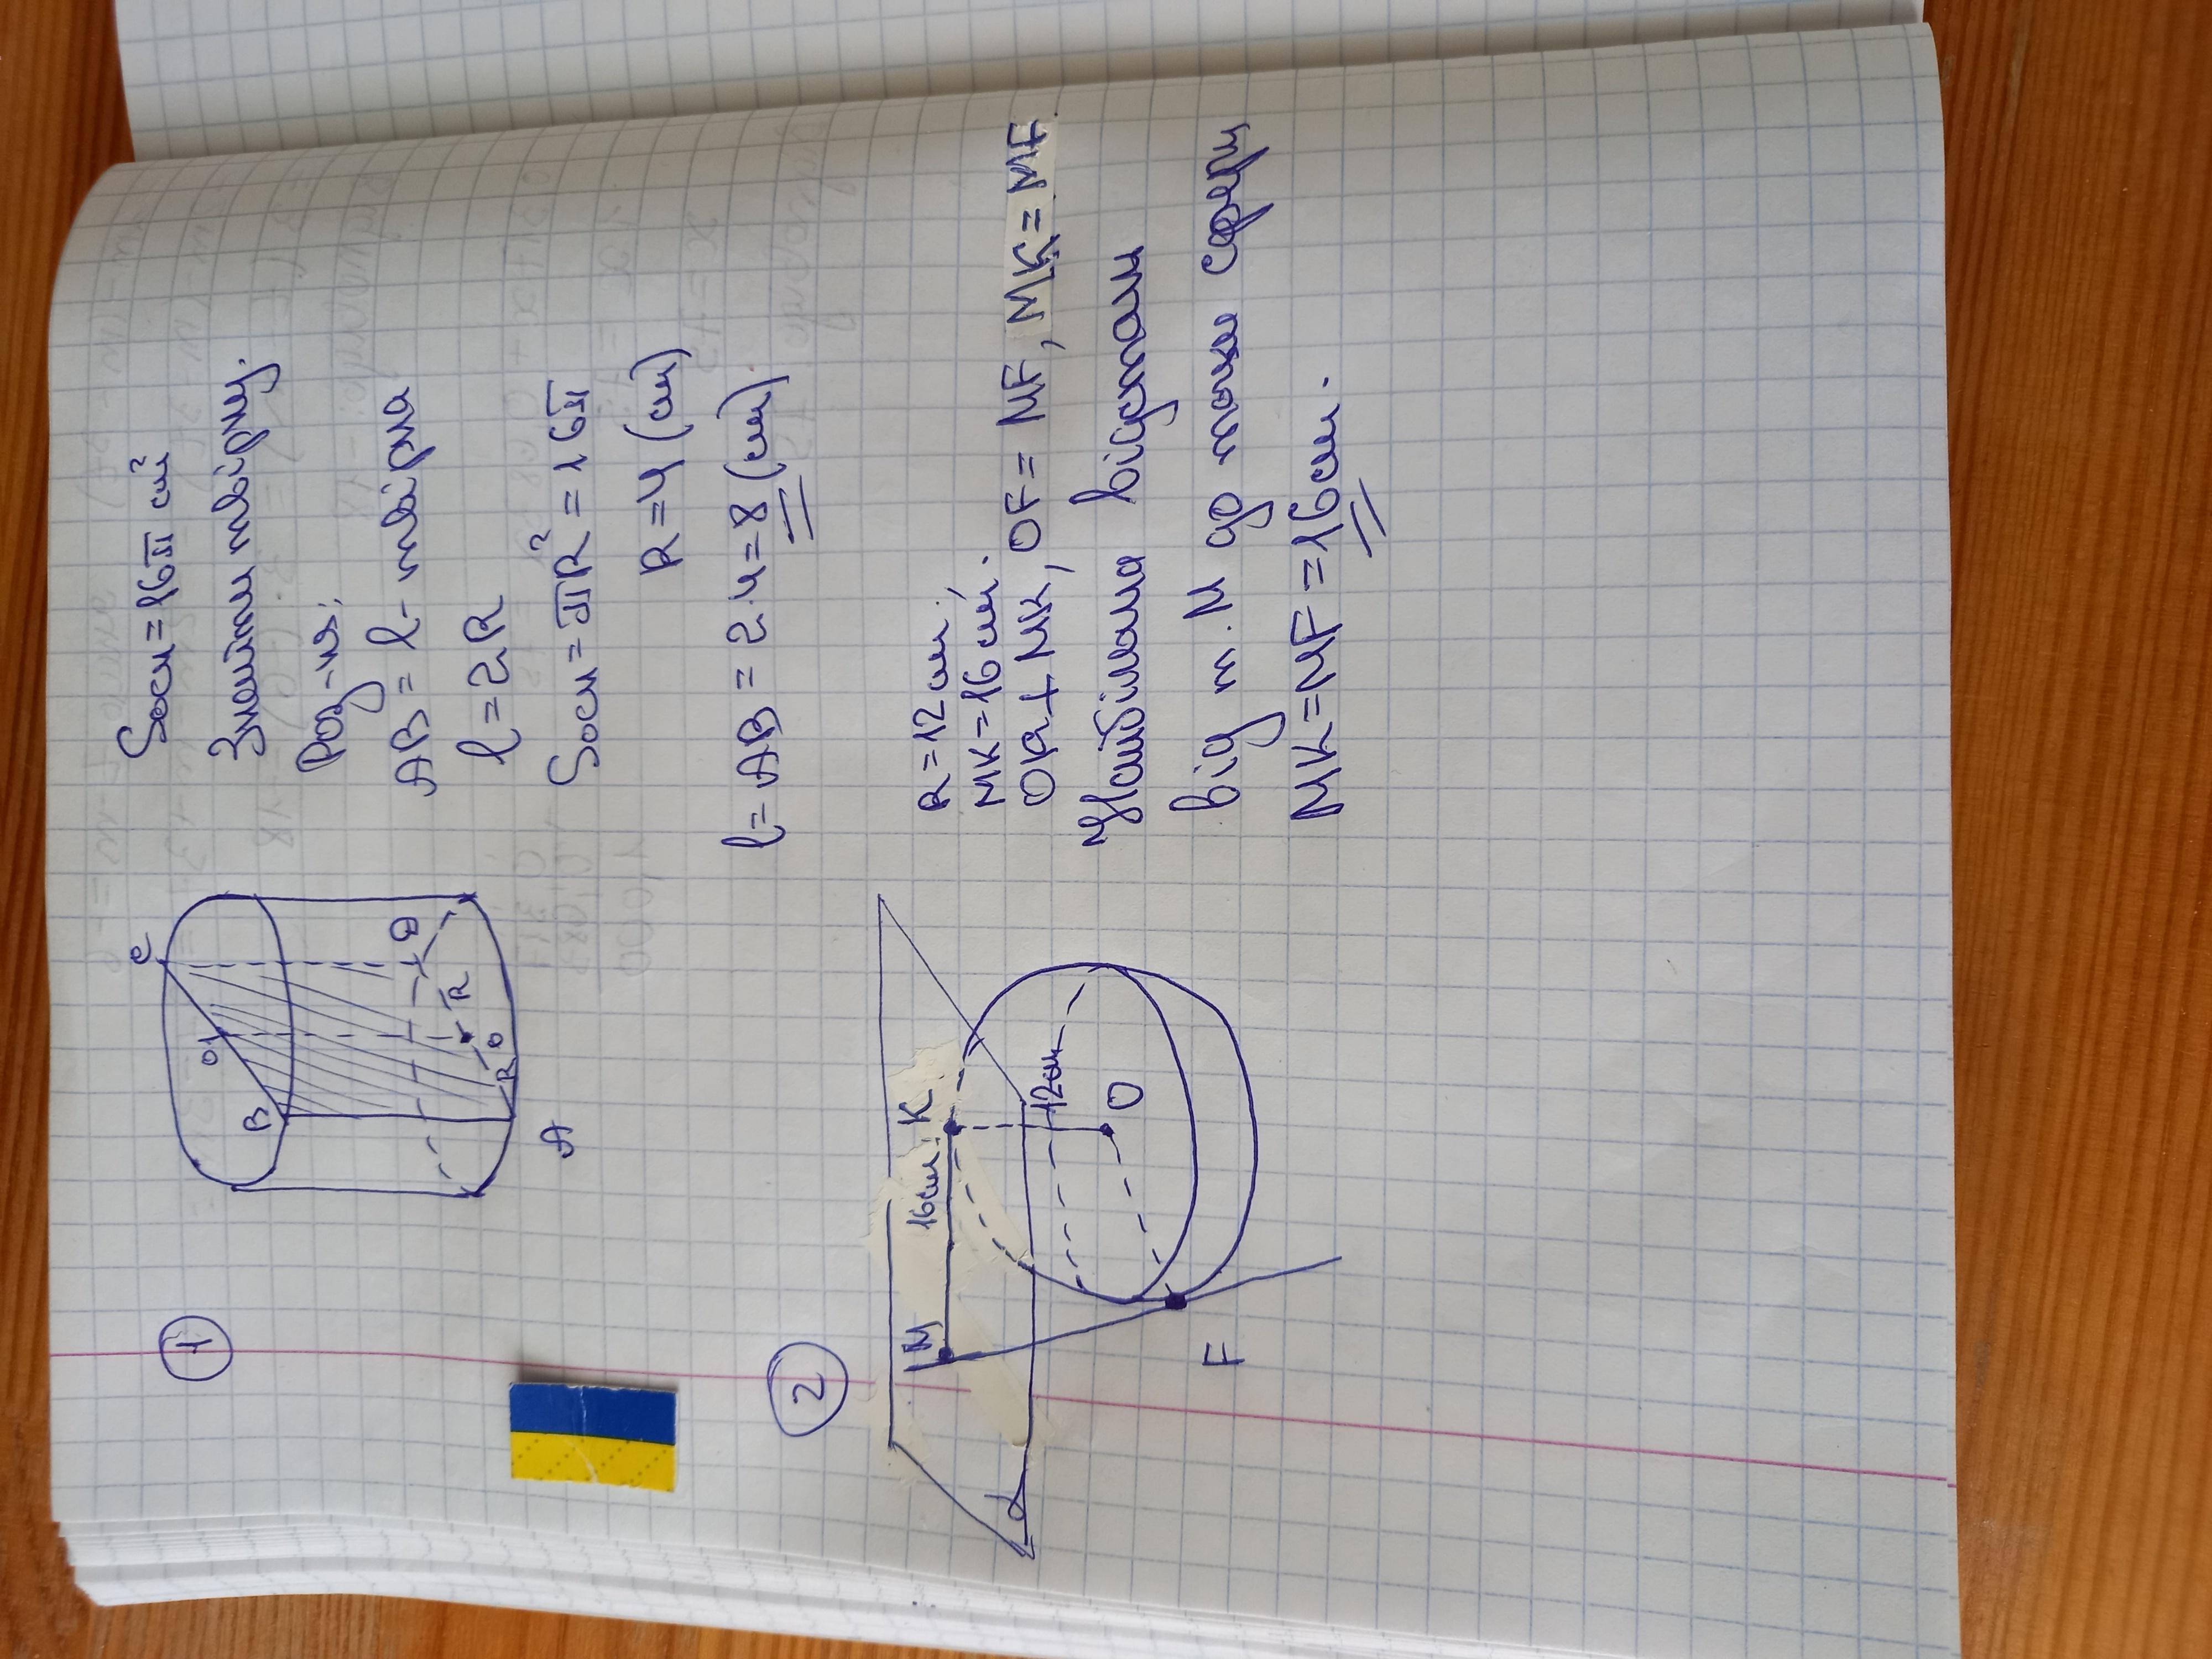 1
Sосн = 16π см²
Знайти твірну.
Роз-ня:
AB = l - твірна
l = 2R
Sосн = πR² = 16π
R = 4 (см)
l = AB = 2·4 = 8 (см)
C
O1
B
D
R
O
R
A
2
R = 12 см;
MK = 16 см.
OK ⊥ MK, OF = MF, MK = MF
Найбільша відстань
від т. M до точки сфери
MK = MF = 16 см.
M
16 см
K
12 см
O
α
F